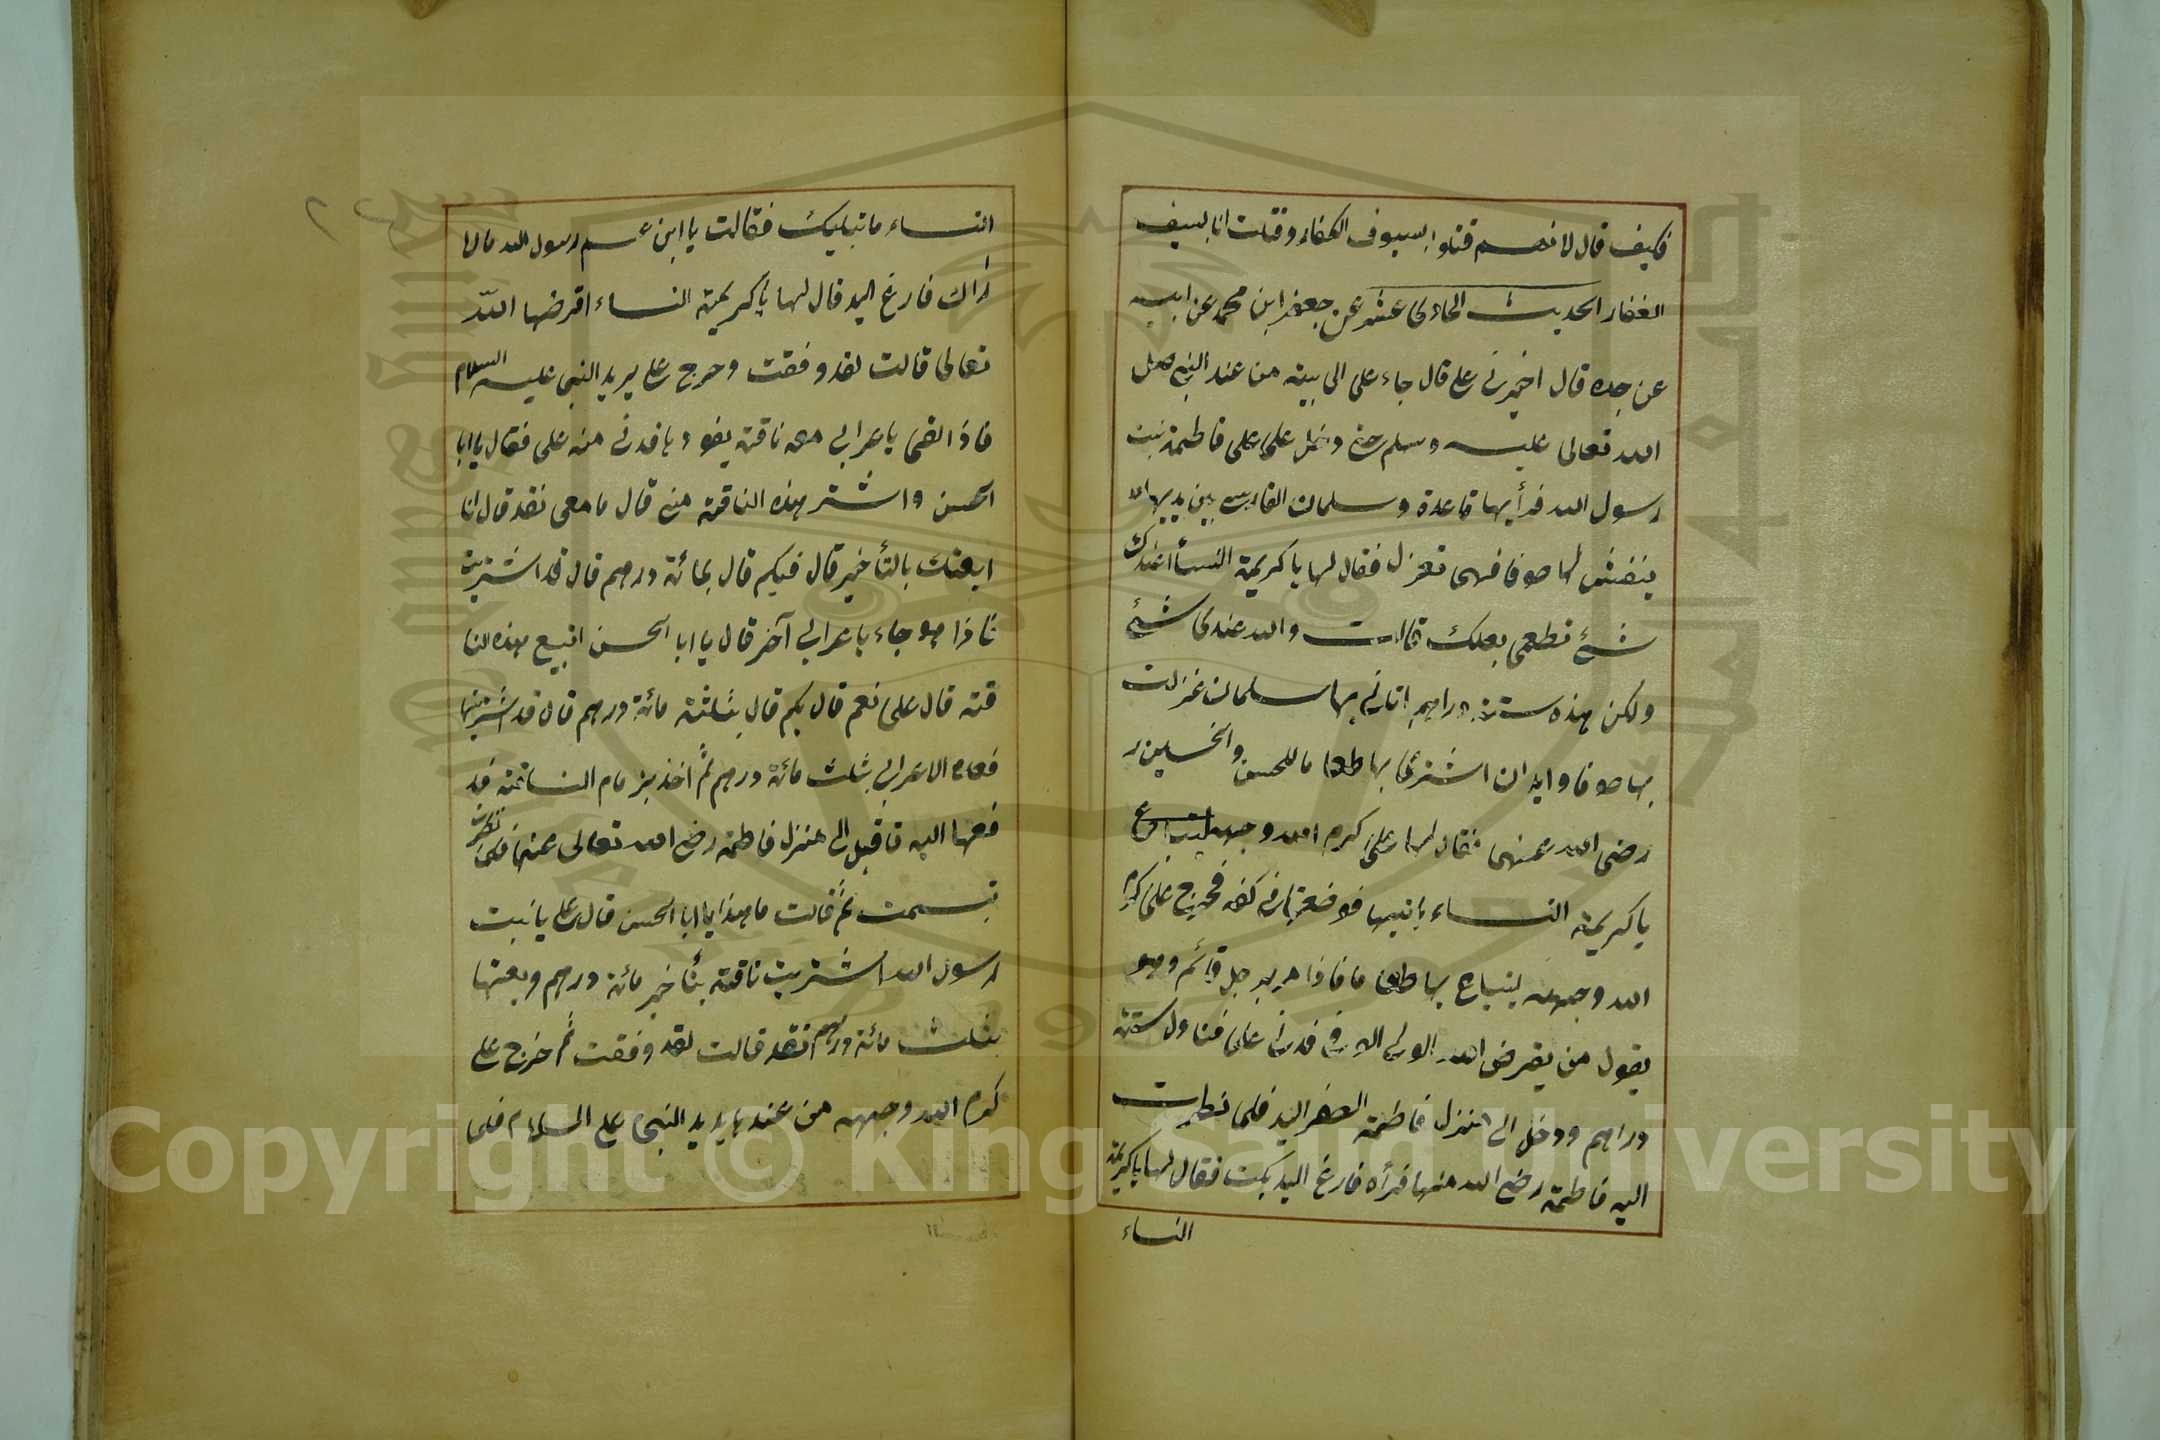 فكيف قال لانهم قتلوا بسيوف الكفار وقتلت انا بسيف
الغفار الحديث الحادى عشر عن جعفر ابن محمد عن ابيه
عن جده قال اخبرنى على قال جاء على الى بيته من عند النبى صلى
الله تعالى عليه وسلم حتى دخل على على فاطمة بنت
رسول الله فرأيها قاعدة وسلمان الفارسى بين يديها
ينفش لها صوفا فهى تغزل فقال لها يا كريمة النسأ اعندك
شئ تطعمى بعلك قالت والله عندى شئ
ولكن هذه ستة دراهم اتانى بها سلمان غزلت
بها صوفا و ان اشترى بها طعاما للحسن والحسين ر
رضى الله عنهى فقال لها على كرم الله وجهه
يا كريمة النساء باتيها فوضعتها فى كفه فخرج على كرم
الله وجهه ليتباع بها طعاما فاذا هو برجل قائم وهو
يقول من يقرض الله الولى الوفى فدنى على فناول ستة
دراهم ودخل الى منزل فاطمة اليد فلما نظرت
اليه فاطمة رضى الله عنها فرأه فارغ اليد بكت فقال لها يا كريمة
النساء
النساء ما تبكيك فقالت يا ابن عم رسول الله مالى
اراك فارغ اليد قال لها يا كريمة النساء اقرضها الله
تعالى قالت لقد وفقت وخرج على يريد النبى عليه السلام
فاذا لقى باعرابى معه ناقة يقود بها فدنى منه على فقال يا ابا
الحسن واشتر هذه الناقة منى قال ما معى نقد قال انا
ابيعتك بالتأخير قال فبكم قال بمائة درهم قال قد اشتريت
فاذا هو جاء باعرابى آخر قال يا ابا الحسن اتبيع هذه النا
قة قال على نعم قال بكم قال بثلثة مائة درهم قال قد اشتريتها
فعد الاعرابى بثلث مائة درهم ثم اخذ بزمام الناقة فد
فعها اليه فاقبل الى منزل فاطمة رضى الله تعالى عنها فلما نظرت
تبسمت ثم قالت ما هذا يا ابا الحسن قال على يا بنت
رسول الله اشتريت ناقة بتأخير مائة درهم وبعتها
بثلث مائة درهم نقد قالت لقد وفقت ثم خرج على
كرم الله وجهه من عندها يريد النبى على السلام فلما
Copyright © King Saud University